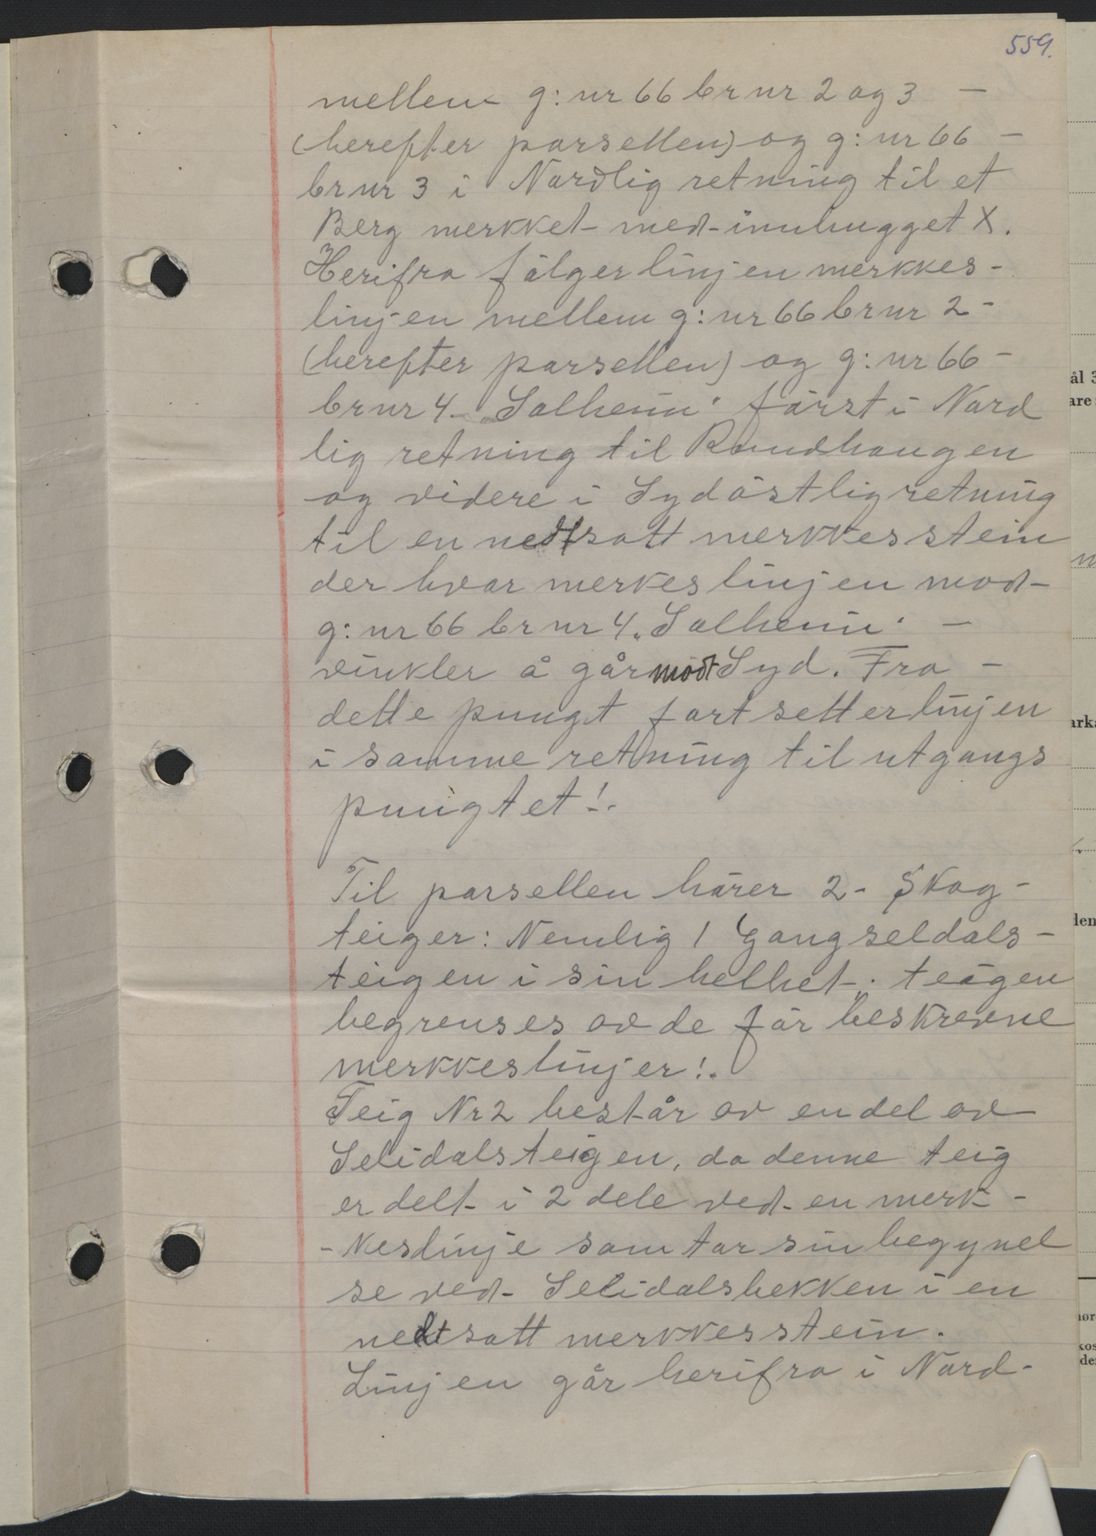 559.
mellem g: nr 66 br nr 2 og 3 —
(herefter parsellen) og g: nr 66 —
br nr 3 i Nordlig retning til et
Berg merkket med innhugget X.
Herifra følger linjen merkkes-
linjen mellem g: nr 66 br nr 2 -
(herefter parsellen) og g: nr 66 -
br nr 4 „Solheim" først i Nord
lig retning til Rundhaugen
og videre i Sydøstlig retning
til en nedsatt merkkesstein
der hvor merkeslinjen mod-
g: nr 66 br nr 4 „Solheim" —
vinkler å går mot Syd. Fra -
dette pungt fortsetter linjen
i samme retning til utgangs
pungtet!.
Til parsellen hører 2 - Skog-
teiger: Nemlig 1 Gangseldals-
teigen i sin helhet; teigen
begrenses av de før beskrevne
merkkeslinjer!.
Teig Nr 2 består av en del av
Selidalsteigen, da denne teig
er delt i 2 dele ved en merk-
- keslinje som tar sin begynel
se ved Selidalsbekken i en
nedsatt merkkesstein.
Linjen går herifra i Nord-
ål 3
are
ark
den